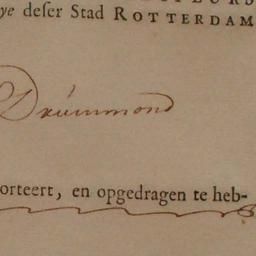 ye deſer Stad ROTTERDAM
Drummond
orteert, en opgedragen te heb-